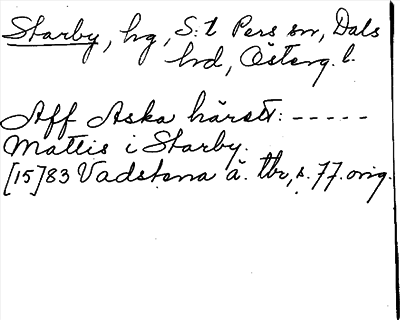 Starby, hg, S:t Pers sn, Dals
hd, Österg. l.
Aff Aska härett: -----
Mattis i Starby.
[15]83 Vadstena ä. tbr, s. 77. orig.